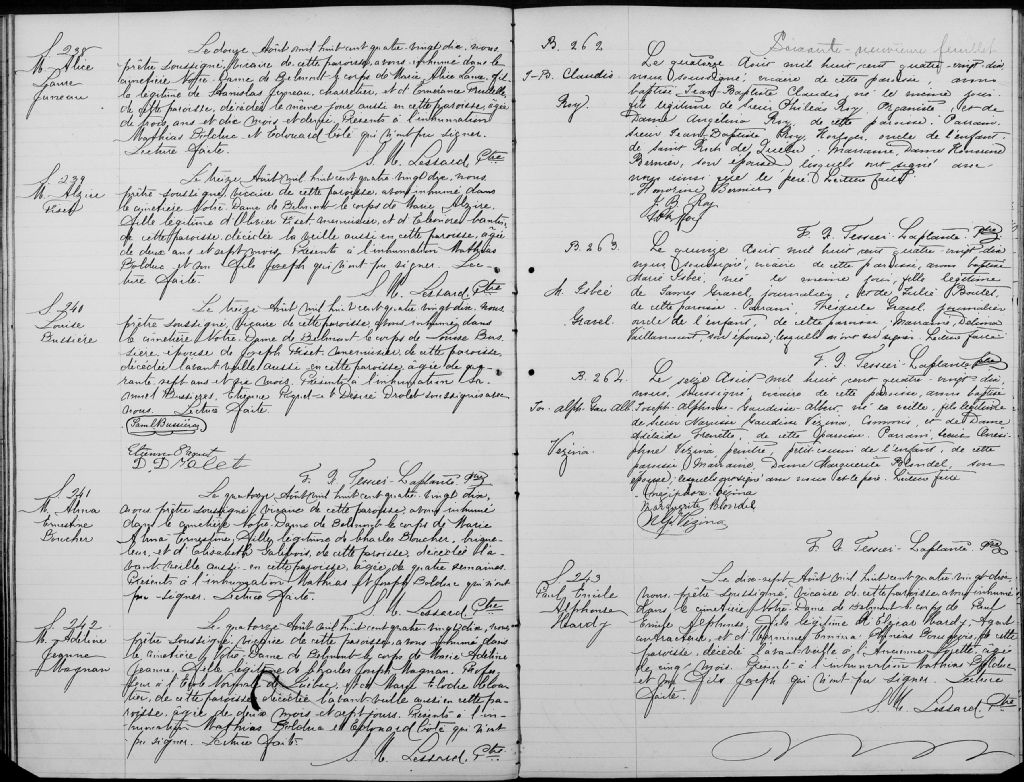 S 238
M. Alice
Jeanne
Juneau
Le douze Août mil huit cent quatre-vingt dix, nous
prêtre soussigné, vicaire de cette paroisse, avons inhumé dans le
cimetière Notre-Dame de Belmont le corps de Marie Alice Jeanne, fil-
le légitime de Stanislas Juneau, charretier, et d'Emérance
de cette paroisse, décédée le même jour aussi en cette paroisse, âgée
de trois ans et dix mois et demi. Présents à l'inhumation
Mathias Bolduc et Edouard Côté qui n'ont pu signer.
Lecture faite.
S. M. Lessard Ptre
S 239
M. Alzire
Fiset
Le treize Août mil huit cent quatre-vingt dix, nous
prêtre soussigné, vicaire de cette paroisse, avons inhumé dans
le cimetière Notre-Dame de Belmont le corps de Marie Alzire,
fille légitime d'Olivier Fiset, menuisier, et d'Eléonore
de cette paroisse, décédée la veille aussi en cette paroisse, âgée
de deux ans et sept mois. Présents à l'inhumation Mathias
Bolduc et son fils Joseph qui n'ont pu signer. Lec-
ture faite.
S. M. Lessard Ptre
S 240
Louise
Bussière
Le treize Août mil huit cent quatre-vingt dix, nous
prêtre soussigné, vicaire de cette paroisse, avons inhumé dans
le cimetière Notre-Dame de Belmont le corps de Louise Bus-
sière, épouse de Joseph Fiset, menuisier, de cette paroisse,
décédée l'avant-veille aussi en cette paroisse, âgée de
sept ans et six mois. Présents à l'inhumation
Bussières, Etienne et Désiré Drolet soussignés avec
nous. Lecture faite.
Etienne
D. Drolet
F. I. Tessier-Laplante Ptre
S 241
M. Alma
Ernestine
Boucher
Le quatorze Août mil huit cent quatre-vingt dix,
nous prêtre soussigné, vicaire de cette paroisse, avons inhumé
dans le cimetière Notre-Dame de Belmont le corps de Marie
Alma Ernestine, fille légitime de Charles Boucher, brique-
leur, et d'Elisabeth de cette paroisse, décédée l'a-
vant-veille aussi en cette paroisse, âgée de quatre semaines.
Présents à l'inhumation Mathias et Joseph Bolduc qui n'ont
pu signer. Lecture faite.
S. M. Lessard Ptre
S 242
M. Adéline
Jeanne
Magnan
Le quatorze Août mil huit cent quatre-vingt dix, nous
prêtre soussigné, vicaire de cette paroisse, avons inhumé dans
le cimetière Notre-Dame de Belmont le corps de Marie Adéline
Jeanne, fille légitime de Charles Joseph Magnan, Profes-
seur à l'Ecole Normale de Québec, et de Marie Elodie
de cette paroisse, décédée l'avant-veille aussi en cette pa-
roisse, âgée de deux mois et sept jours. Présents à l'in-
humation Mathias Bolduc et Edouard Côté qui n'ont
pu signer. Lecture faite.
S. M. Lessard Ptre
Soixante-neuvième feuillet
B. 262
J-B. Claudio
Roy
Le quatorze Août mil huit cent quatre-vingt-dix,
nous soussigné, vicaire de cette paroisse, avons
baptisé Jean-Baptiste Claudio, né le même jour,
fils légitime de Sieur Philéas Roy, Organiste, et de
Dame Angélina Roy, de cette paroisse. Parrain,
Sieur Jean-Baptiste Roy, Horloger, oncle de l'enfant
de Saint Roch de Québec. Marraine, Dame Honorine
Bernier, son épouse, lesquels ont signé avec
nous ainsi que le père. Lecture faite
Honorine Bernier
J. B. Roy
F. I. Tessier-Laplante Ptre
B. 263.
M. Esbée
Gravel.
Le quinze Août mil huit cent quatre-vingt dix
nous soussigné, vicaire de cette paroisse, avons baptisé
Marie Esbée, née le même jour, fille légitime
de James Gravel, journalier, et de Boutet,
de cette paroisse. Parrain, Gravel, journalier
oncle de l'enfant, de cette paroisse, Marraine, Délima
Vaillancourt, son épouse, lesquels n'ont su signer. Lecture faite
F. I. Tessier-Laplante Ptre
B. 264.
Jos. Alph. Gau. Alb.
Vézina.
Le seize Août mil huit cent quatre-vingt dix,
nous, soussigné vicaire de cette paroisse, avons baptisé
Joseph Alphonse Gaudiose Albert, né la veille, fils légitime
de Sieur Narcisse Gaudiose Vézina, Commis, et de Dame
Adelaïde de cette paroisse. Parrain, Sieur Onési-
phore Vézina, peintre, petit-cousin de l'enfant, de cette
paroisse, Marraine, Dame Marguerite Blondel, son
épouse, lesquels ont signé avec nous et le père. Lecture faite
Onésiphore Vézina
Marguerite Blondel
Vézina
F. I. Tessier-Laplante Ptre
S 243
Paul Emile
Alphonse
Hardy
Le dix-sept Août mil huit cent quatre-vingt dix,
nous prêtre soussigné, vicaire de cette paroisse, avons inhumé
dans le cimetière Notre-Dame de Belmont le corps de Paul
Emile Alphonse, fils légitime de Elzéar Hardy, Agent
et d'Herminie Emma de cette
paroisse, décédé l'avant-veille à l'Ancienne Lorette, âgé
de cinq mois. Présents à l'inhumation Mathias Bolduc
et son fils Joseph qui n'ont pu signer. Lecture
faite.
S. M. Lessard Ptre